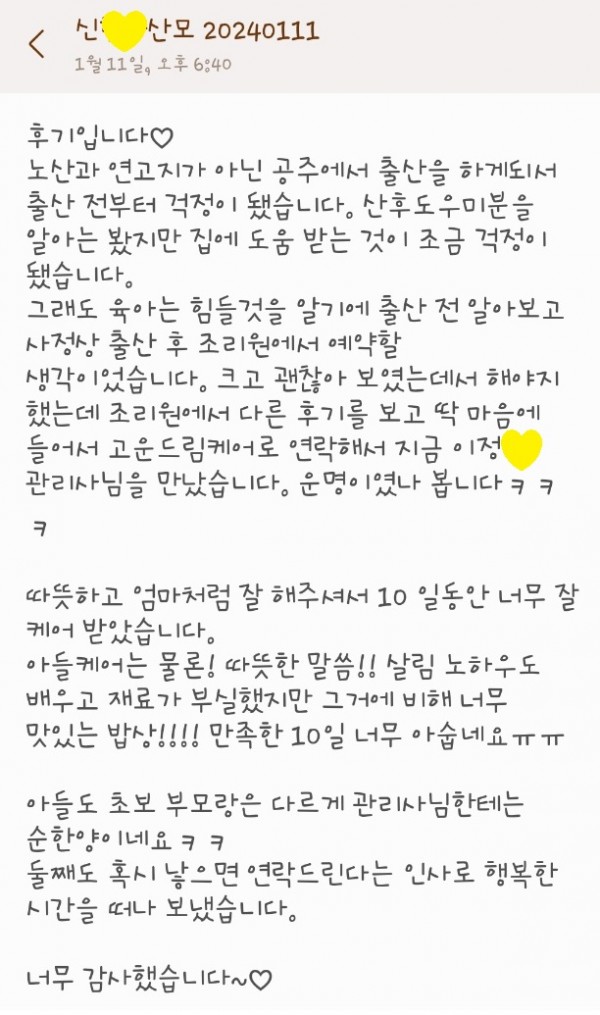 신 산모 20240111
1월 11일, 오후 6:40
후기입니다♡
노산과 연고지가 아닌 공주에서 출산을 하게되서
출산 전부터 걱정이 됐습니다. 산후도우미분을
알아는 봤지만 집에 도움 받는 것이 조금 걱정이
됐습니다.
그래도 육아는 힘들것을 알기에 출산 전 알아보고
사정상 출산 후 조리원에서 예약할
생각이었습니다. 크고 괜찮아 보였는데서 해야지
했는데 조리원에서 다른 후기를 보고 딱 마음에
들어서 고운드림케어로 연락해서 지금 이정
관리사님을 만났습니다. 운명이였나 봅니다ㅋㅋ
ㅋ
따뜻하고 엄마처럼 잘 해주셔서 10 일동안 너무 잘
케어 받았습니다.
아들케어는 물론! 따뜻한 말씀!! 살림 노하우도
배우고 재료가 부실했지만 그거에 비해 너무
맛있는 밥상!!!! 만족한 10일 너무 아숩네요ㅠㅠ
아들도 초보 부모랑은 다르게 관리사님한테는
순한양이네요ㅋㅋ
둘째도 혹시 낳으면 연락드린다는 인사로 행복한
시간을 떠나 보냈습니다.
너무 감사했습니다~♡